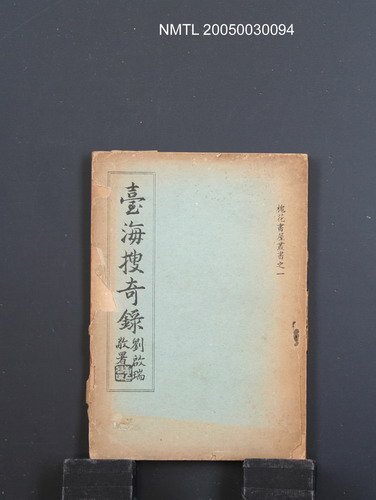 NMTL 20050030094
槐花書屋叢書之一
臺海搜奇錄
劉啟瑞
敬署